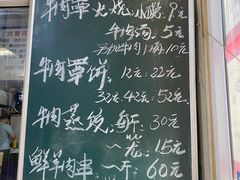 牛肉罩火烧:小碗9元
牛肉汤5元
另加牛肉1两10元
牛肉罩饼12元22元
32元42元52元
牛肉蒸饺,一斤30元
一笼15元
鲜羊肉串一斤60元